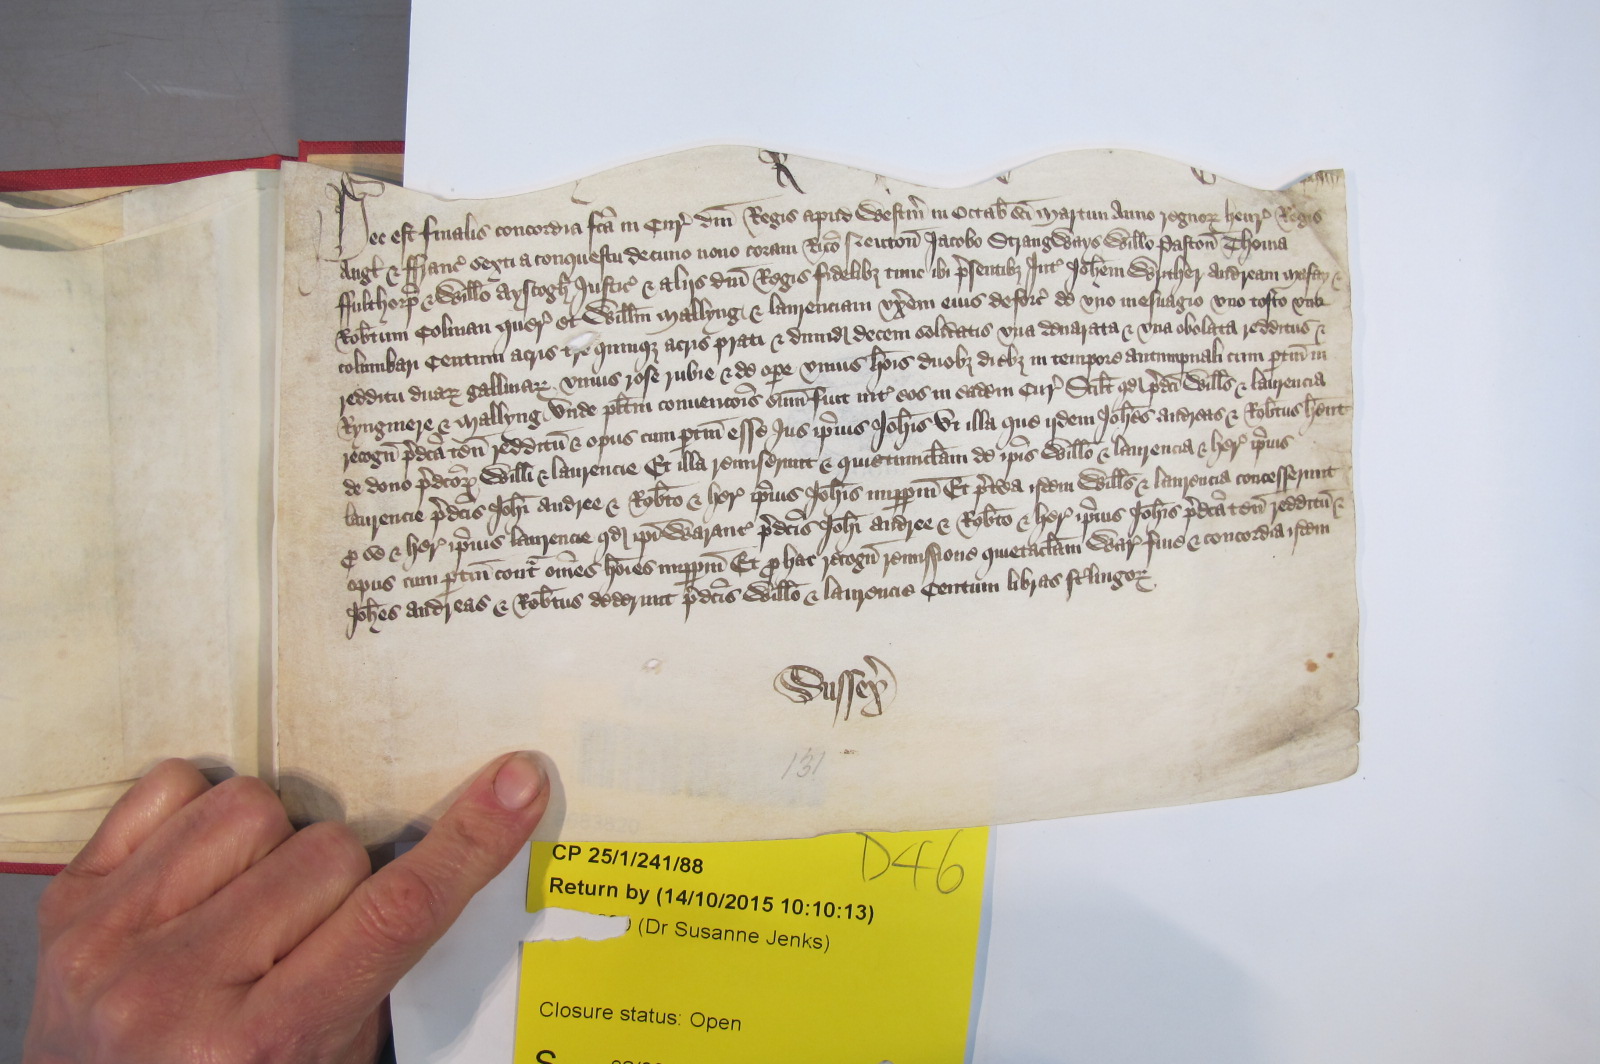 Hec est finalis concordia fca in Cur dni Regis apud Westm in Octab Sci Martini Anno regnor Henr Regis
Angl & Franc sexti a conquestu decimo nono coram Rico Neuton Jacobo Strangways Willo Paston Thoma
Fulthorp & Willo Ayscogh Justic & alijs dni Regis fidelibz tunc ibi psentibz Int Johem Wyther Andream &
Robtum Colman quer et Willm Mallyng & Laurenciam uxem eius deforc de uno mesuagio uno tofto uno
columbari Centum acris tre quinqz acris prati & dimid decem solidatis una denarata & una obolata redditus &
redditu duar gallinar unius rose rubie & de ope unius hois duobz diebz in tempore autumpnali cum ptin in
Ryngmere & Mallyng Unde plitm convencois sum fuit int eos in eadem Cur Scilt qd pdci Wills & Laurencia
recogn pdca ten redditu & opus cum ptin esse Jus ipius Johis Ut illa que ijdem Johes Andreas & Robtus hent
de dono pdcor Willi & Laurencie Et illa remiserunt & quietumclam de ipis Willo & Laurencia & her ipius
Laurencie pdcis Johi Andree & Robto & her ipius Johis imppm Et ptea ijdem Wills & Laurencia concesserunt
p se & her ipius Laurencie qd ipi Warant pdcis Johi Andree & Robto & her ipius Johis pdca ten redditu &
opus cum ptin cont omes hoies imppm Et p hac recogn remissione quietaclam War fine & concordia ijdem
Johes Andreas & Robtus dederunt pdcis Willo & Laurencie Centum libras stlingor
Sussex
131
CP 25/1/241/88
D46
Return by (14/10/2015 10:10:13)
(Dr Susanne Jenks)
Closure status: Open